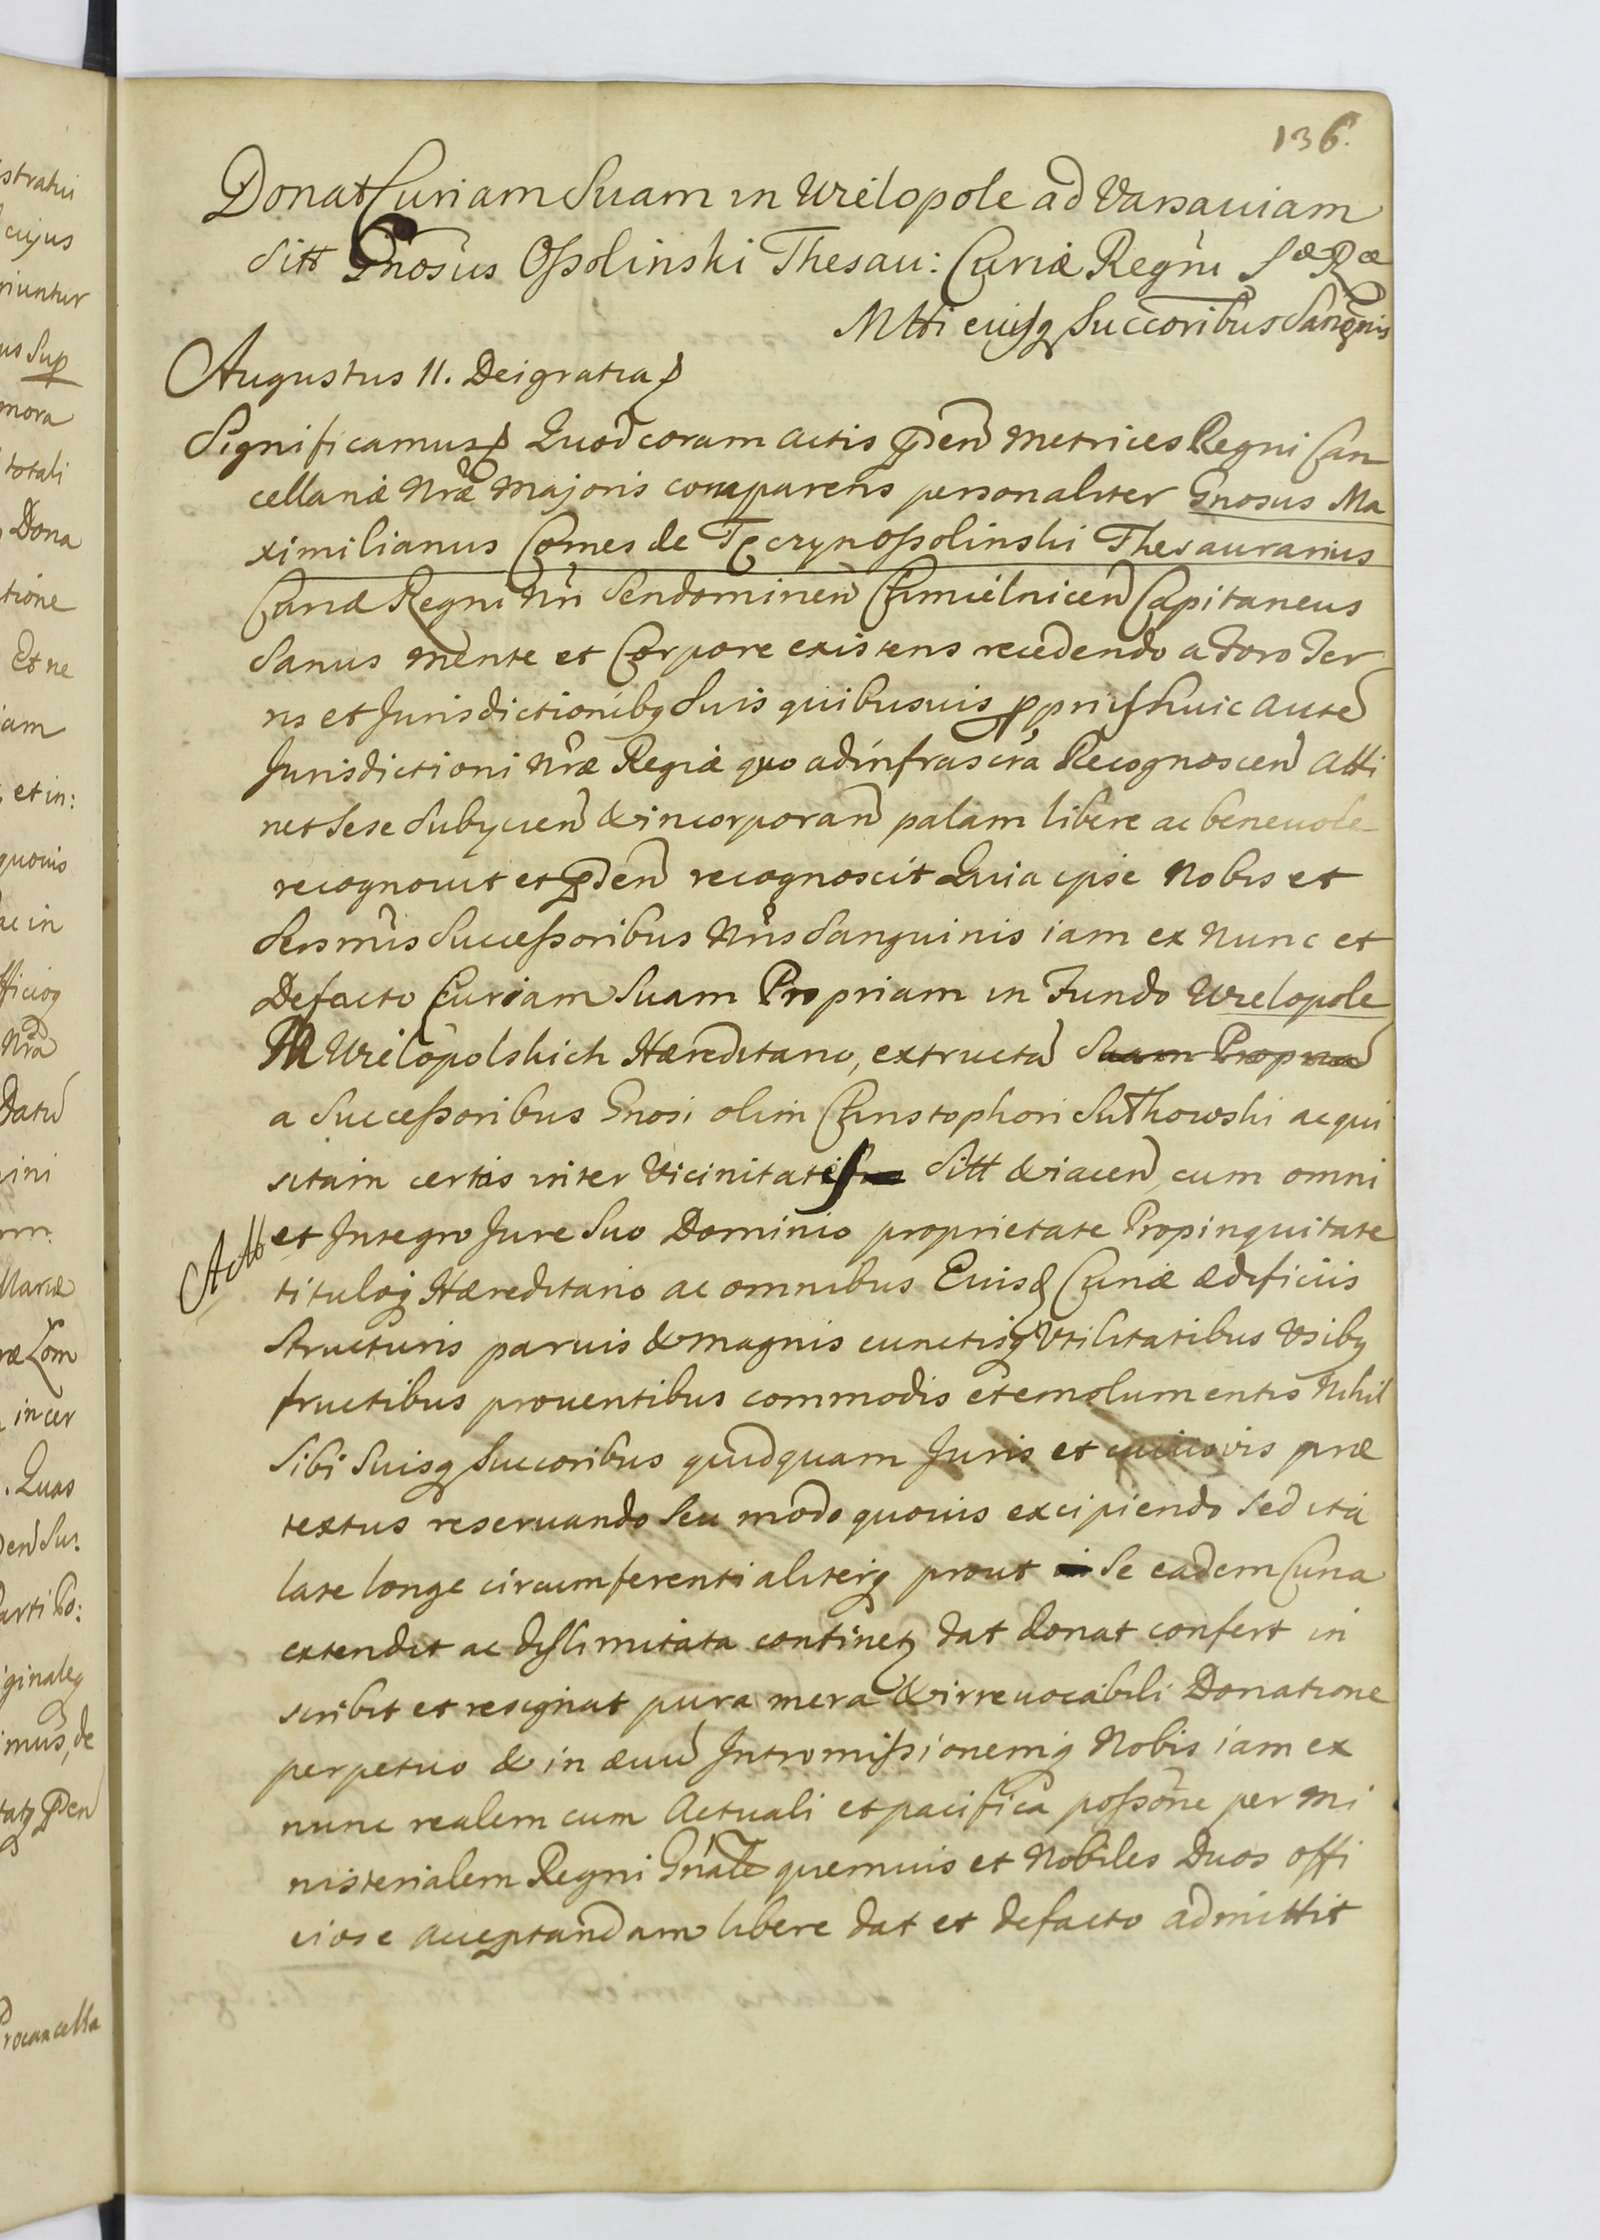 136.
Donat Curiam Suam in Wielopole ad Varsauiam
sitt Gnosus Ossolinski Thesau: Curiæ Regni Sæ Ræ
Mtti eiusq Succoribus Sangnis
Augustus II. Dei gratia
Significamus Quod coram actis pden Metrices Regni Can
cellariæ Nræ Majoris comparens personaliter Gnosus Ma
ximilianus Comes de Tęczyn Ossolinski Thesaurarius
Curiæ Regni Nri Sendomirien Chmielnicen Capitaneus
Sanus mente et Corpore existens recedendo a Foro Ter
ris et Jurisdictionibq Suis quibusuis pprijs huic aute
Jurisdictioni Nræ Regiæ quo ad infrascra Recognoscen atti
net Sese Subijcien & incorporan palam libere ac beneuole
recognouit et pden recognoscit Quia ipse Nobis et
Sersmis Successoribus Nris Sanguinis iam ex Nunc et
Defacto Curiam Suam Propriam in Fundo Wielopole
M Wielopolskich Hæreditario, extructa Suam Propria
a Successoribus Gnosi olim Christophori Suthowski acqui
sitam certis inter Vicinitates sitt & iacen, cum omni
Actt
et Integro Jure Suo Dominio proprietate Propinquitate
tituloq Hæreditario ac omnibus Eiusd Curiæ ædificiis
Structuris paruis & magnis cunctisq Vtilitatibus Vsibq
fructibus prouentibus commodis et emolumentis Nihil
Sibi Suisq Succoribus quidquam Juris et cuiusvis præ
textus reseruando Seu modo quouis excipiendo Sed ita
late longe circumferentialiterq prout Se eadem Curia
extendit ac dislimitata continetq dat donat confert in
scribit et resignat pura mera & irreuocabili Donatione
perpetuo & in æuu Intromissionemq Nobis iam ex
nunc realem cum Actuali et pacifica possone per Mi
nisterialem Regni Gnale quemuis et Nobiles Duos offi
ciose acceptandam libere dat et defacto admittit